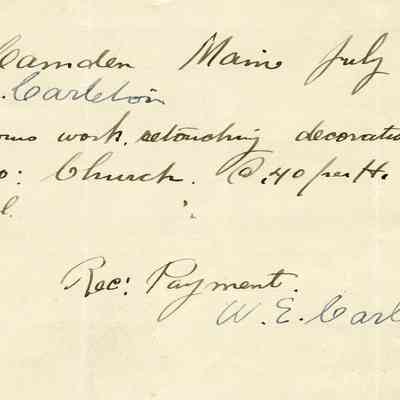 Camden Maine July
. Carleton
ours work, retouching decoratio
o: Church. @ .40 per H.
l.
Rec: Payment.
W. E. Carl